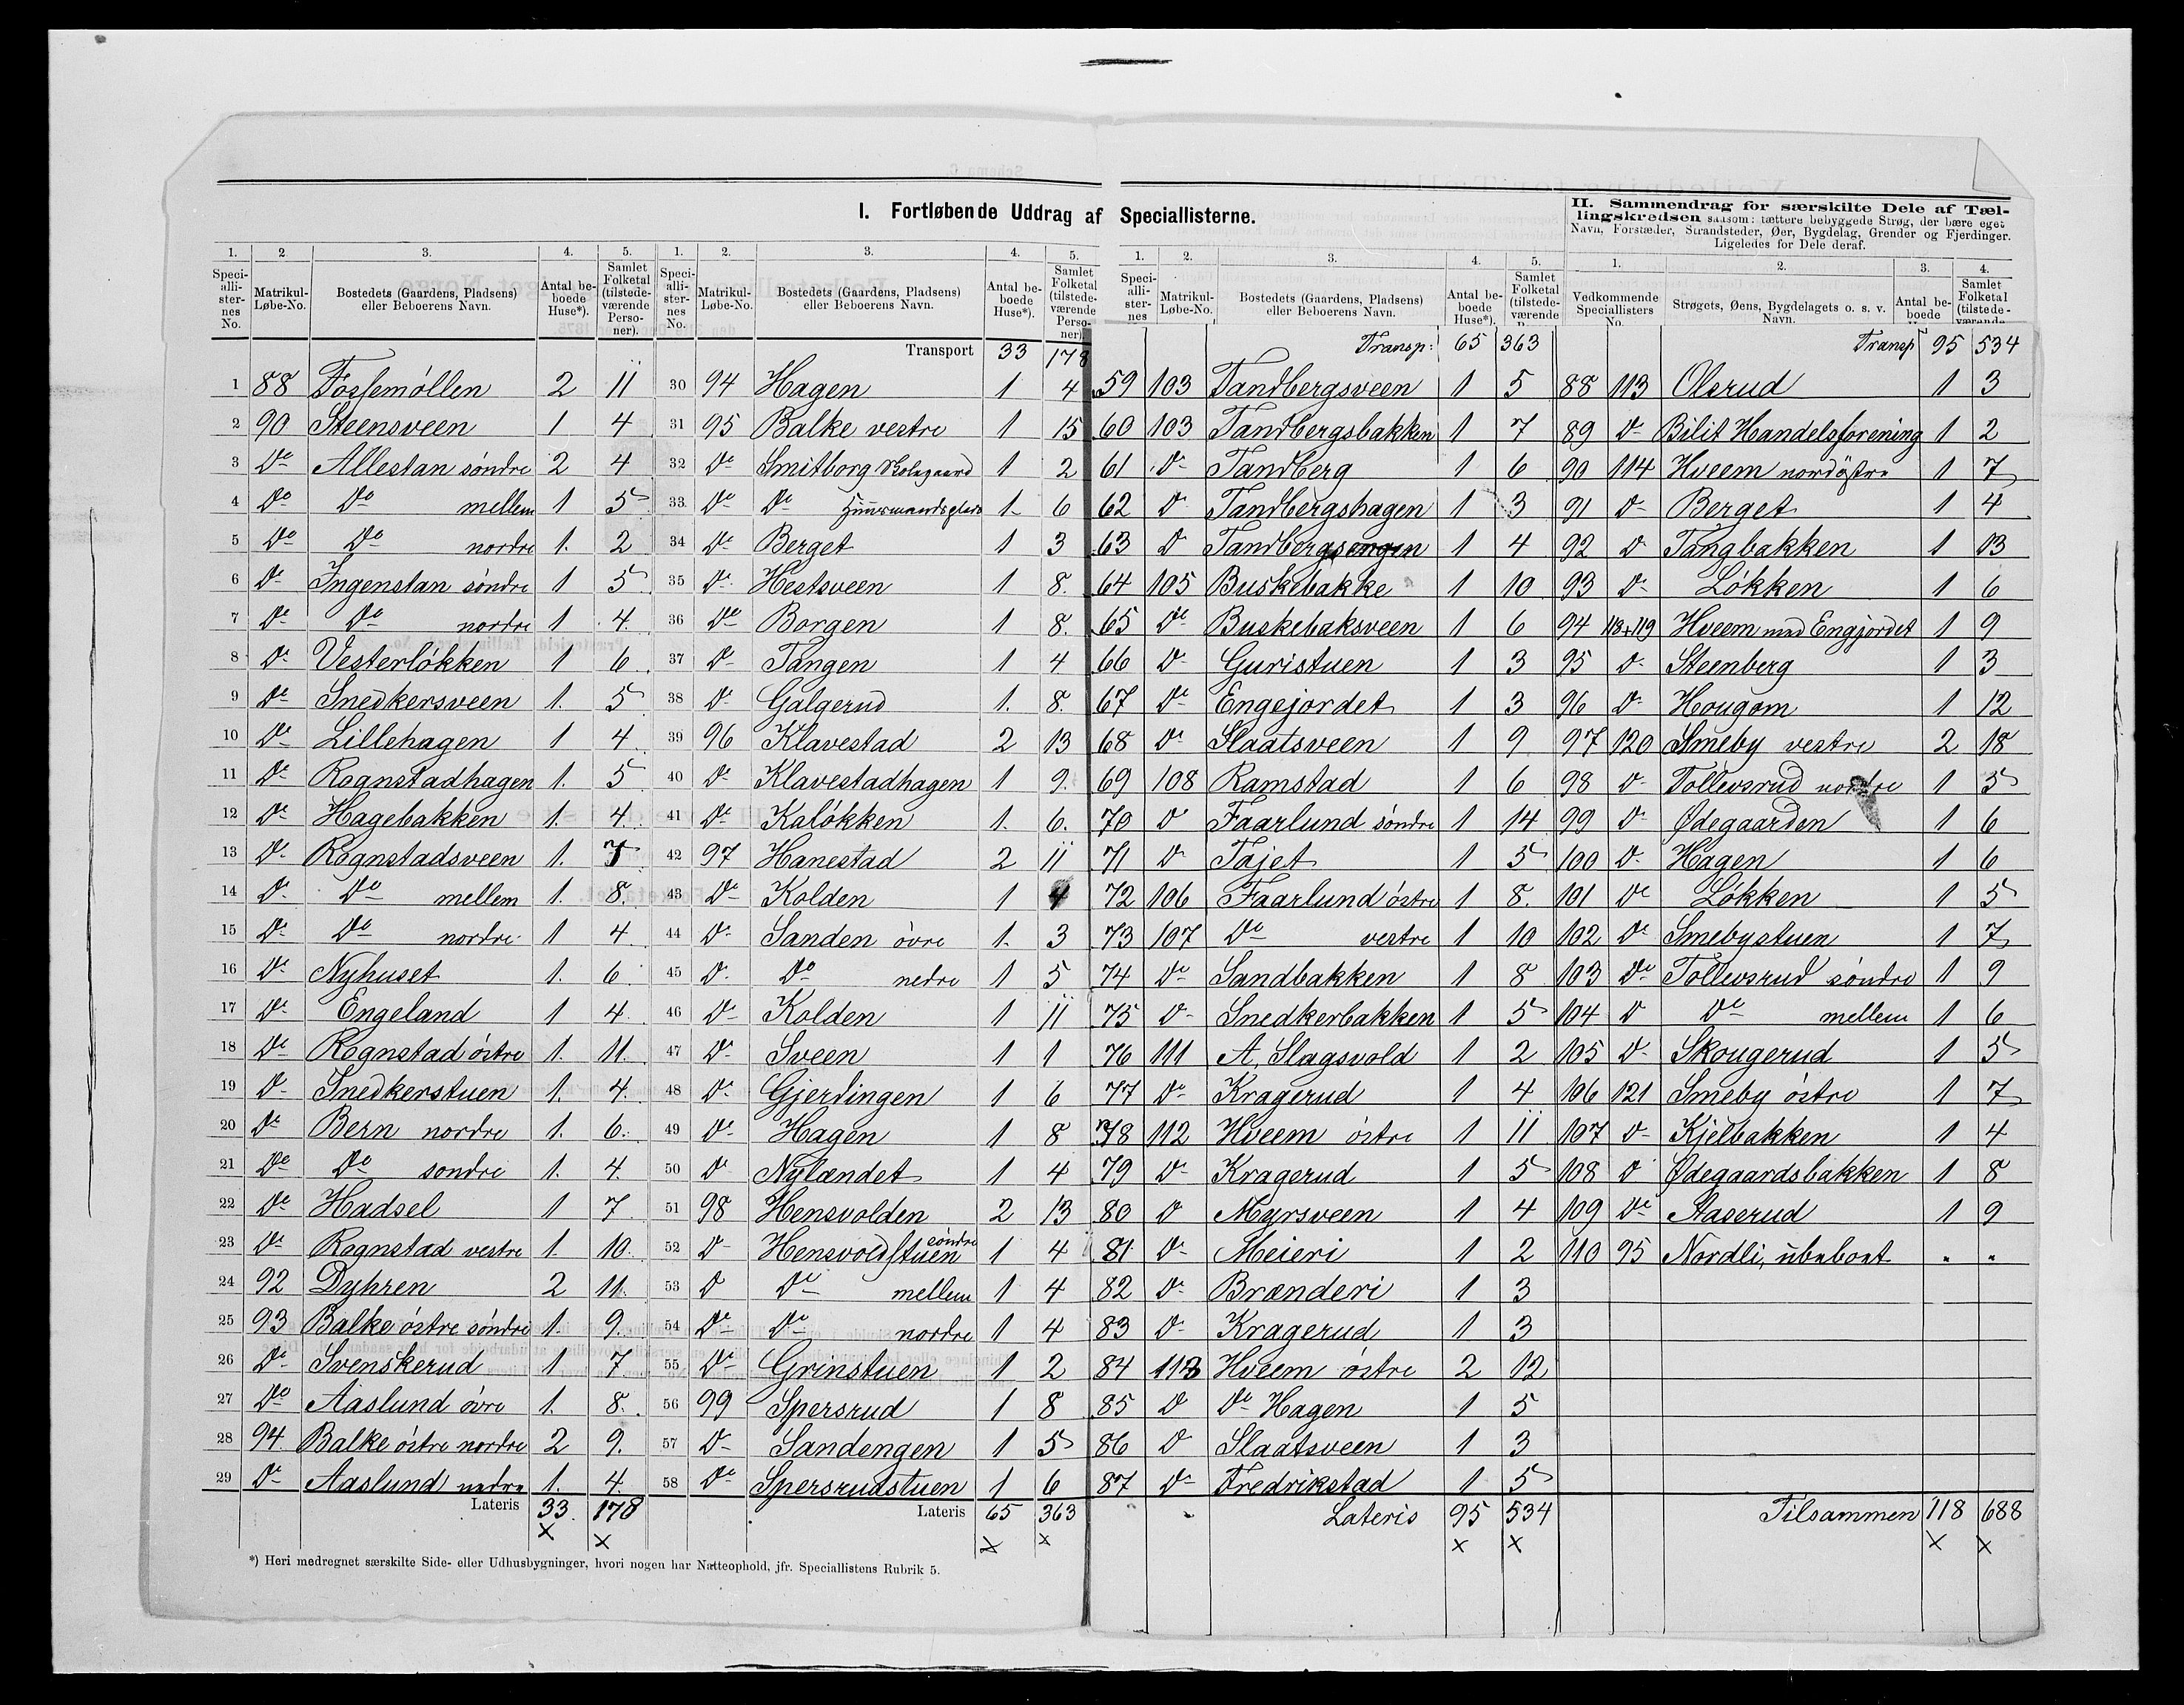 I. Fortløbende Uddrag af Speciallisterne.
II. Sammendrag for særskilte Dele af Tællingskredsen saasom: tættere bebyggede Strøg, der bære eget
Navn, Forstæder, Strandsteder, Øer, Bygdelag, Grender og Fjerdinger.
Ligeledes for Dele deraf.
1. 2 3. 4. 5.
Speciallisternes No. Matrikul-Løbe-No. Bostedets (Gaardens, Pladsens) eller Beboerens Navn. Antal beboede Huse*). Samlet Folketal (tilstedeværende Personer).
1 88 Fossemøllen 2 11
2 90 Steensveen 1 4
3 Do Allestan søndre 2 4
4 Do Do mellem 1 5
5 Do Do nordre 1. 2
6 Do Ingenstan søndre 1 5
7 Do Do nordre 1 4.
8 Do Vesterløkken 1 6
9 Do Snedkersveen 1. 5
10 Do Lillehagen 1 4
11 Do Rognstadhagen 1. 5
12 Do Hagebakken 1. 4.
13 Do Rognstadsveen 1.
14 Do Do mellem 1. 8.
15 Do Do nordre 1 4
16 Do Nyhuset 1. 6
17 Do Engeland 1 4
18 Do Rognstad østre 1. 11.
19 Do Snedkerstuen 1. 4.
20 Do Bern nordre 1. 6.
21 Do Do sondre 1. 4.
22 Do Hadsel 1 7
23 Do Rognstad vestre 1. 10.
24 92 Dyhren 2 11.
25 93 Balke østre søndre 1. 9.
26 Do Svenskerud 1 7
27 Do Aaslund øvre 1. 8.
28 94. Balke østre nordre 2 9.
29 Do Aaslund nedre 1. 4.
Lateris 33 178
1. 2. 3. 4. 5.
Speciallisternes No. Matrikul-Løbe-No. Bostedets (Gaardens, Pladsens) eller Beboerens Navn. Antal beboede Huse*). Samlet Folketal (tilstedeværende Personer).
Transport 33 178
30 94 Hagen 1 4
31 95 Balke vestre 1 15
32 Do Smitborg 1 2
33 Do Do Huusmandsplads 1 6
34 Do Berget 1 3
35 Do Hestsveen 1 8.
36 Do Borgen 1 8.
37 Do Tangen 1 4
38 Do Galgerud 1. 8.
39 96 Klavestad 2 13
40 Do Klavestadhagen 1 9.
41 Do Kaløkken 1. 6.
42 97 Hanestad 2 11
43 Do Kolden 1 4
44 Do Sanden øvre 1. 3
45 Do Do nedre 1 5
46 Do Kolden 1 11
47 Do Sveen 1 1
48 Do Gjerdingen 1 6
49 Do Hagen 1 8
50 Do Nylændet 1 4
51 98 Hensvolden 2 13
52 Do Hensvoldstuen søndre 1 4
53 Do Do mellem 1 4
54 Do Do nordre 1 4
55 Do Grinstuen 1 2
56 99 Spersrud 1 8
57 Do Sandengen 1 5
58 Do Spersrudstuen 1 6
Lateris 65 363
*) Heri medregnet særskilte Side- eller Udhusbygninger, hvori nogen har Natteophold, jfr. Speciallistens Rubrik 5.
1. 2. 3. 4. 5.
Speciallisternes Matrikul-Løbe-No. Bostedets (Gaardens, Pladsens) eller Beboerens Navn. Antal beboede Huse*). Samlet Folketal (tilstedeværende
Transp: 65 363
59 103 Tandbergsveen 1 5
60 103 Tandbergsbakken 1 7
61 Do Tandberg 1 6
62 Do Tandbergshagen 1 3
63 Do Tandbergsengen 1 4
64 105 Buskebakke 1 10
65 Do Buskebaksveen 1 6
66 Do Guristuen 1 3
67 Do Engejordet 1 3
68 Do Slaatsveen 1 9
69 108 Ramstad 1 6
70 Do Faarlund søndre 1 14
71 Do Tajet 1 5
72 106 Faarlund østre 1 8.
73 107 Do vestre 1 10
74 Do Sandbakken 1 8
75 Do Snedkerbakken 1 5
76 111 A. Slagsvold 1 2
77 Do Kragerud 1 4
78 112 Hveem østre 1 11
79 Do Kragerud 1 5
80 Do Myrsveen 1 4
81 Do Meieri 1 2
82 Do Brænderi 1 3
83 Do Kragerud 1 3
84 113 Hveem østre 2 12
85 Do Do Hagen 1 5
86 Do Slaatsveen 1 3
87 Do Fredrikstad 1 5
Lateris 95 534
1. 2. 3. 4.
Vedkommende Speciallisters No. Strøgets, Øens, Bygdelagets o. s. v. Navn. Antal beboede Samlet Folketal (tilstedeværende
Transp 95 534
88 113 Olsrud 1 3
89 Do Bilit Handelsforening 1 2
90 114 Hveem nordøstre 1 7
91 Do Berget 1 4
92 Do Tangbakken 1 13
93 Do Løkken 1 6
94 118+119 Hveem med Engjordet 1 9
95 Do Steenberg 1 3
96 Do Hougom 1 12
97 120 Smeby vestre 2 18
98 Do Tollevsrud nordre 1 5
99 Do Ødegaarden 1 6
100 Do Hagen 1 6
101 Do Løkken 1 5
102 Do Smebystuen 1 7
103 Do Tollevsrud søndre 1 9
104 Do Do mellem 1 6
105 Do Skougerud 1 5
106 121 Smeby østre 1 7
107 Do Kjelbakken 1 4
108 Do Ødegaardsbakken 1 8
109 Do Staserud 1 9
110 95 Nordli, ubeboet " "
Tilsammen 118 688